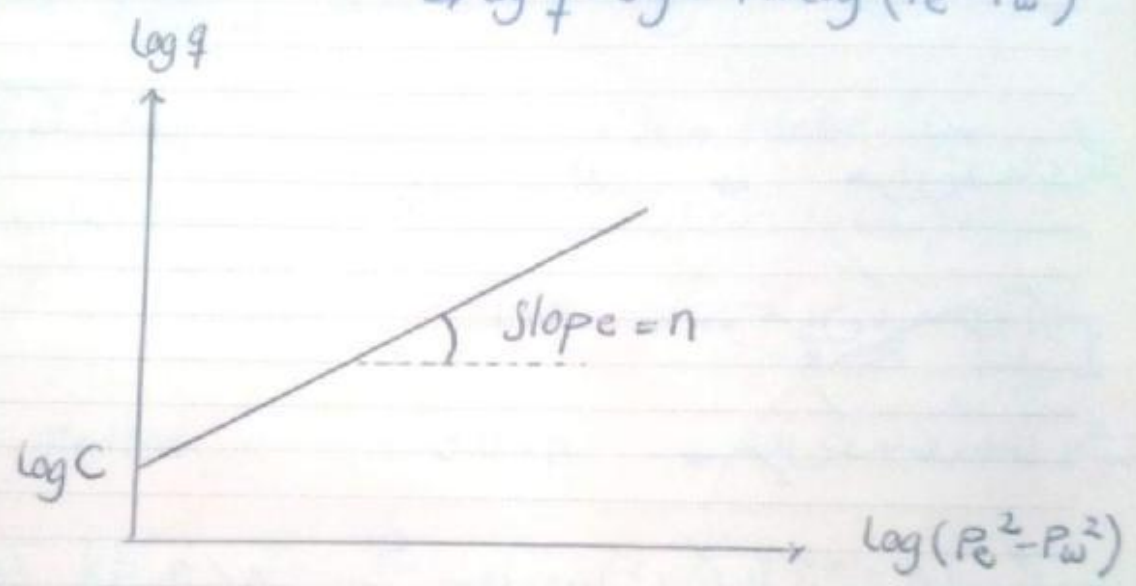 log q
slope = n
log C
log (Pe²-Pw²)